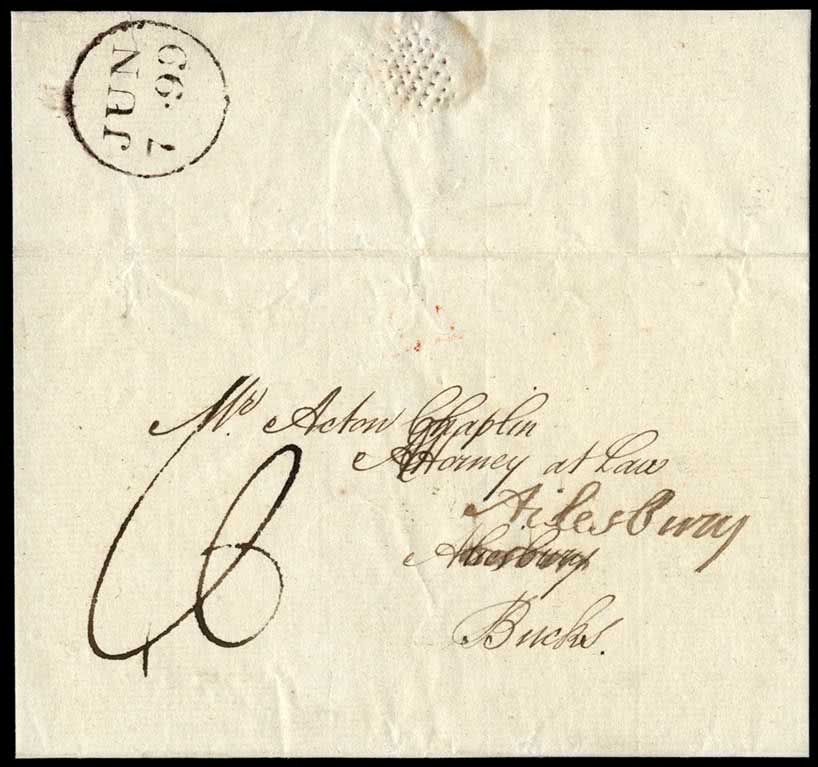 JUN
7 99
Mr. Acton Chaplin
Attorney at Law
Ailesbury
Bucks.
6